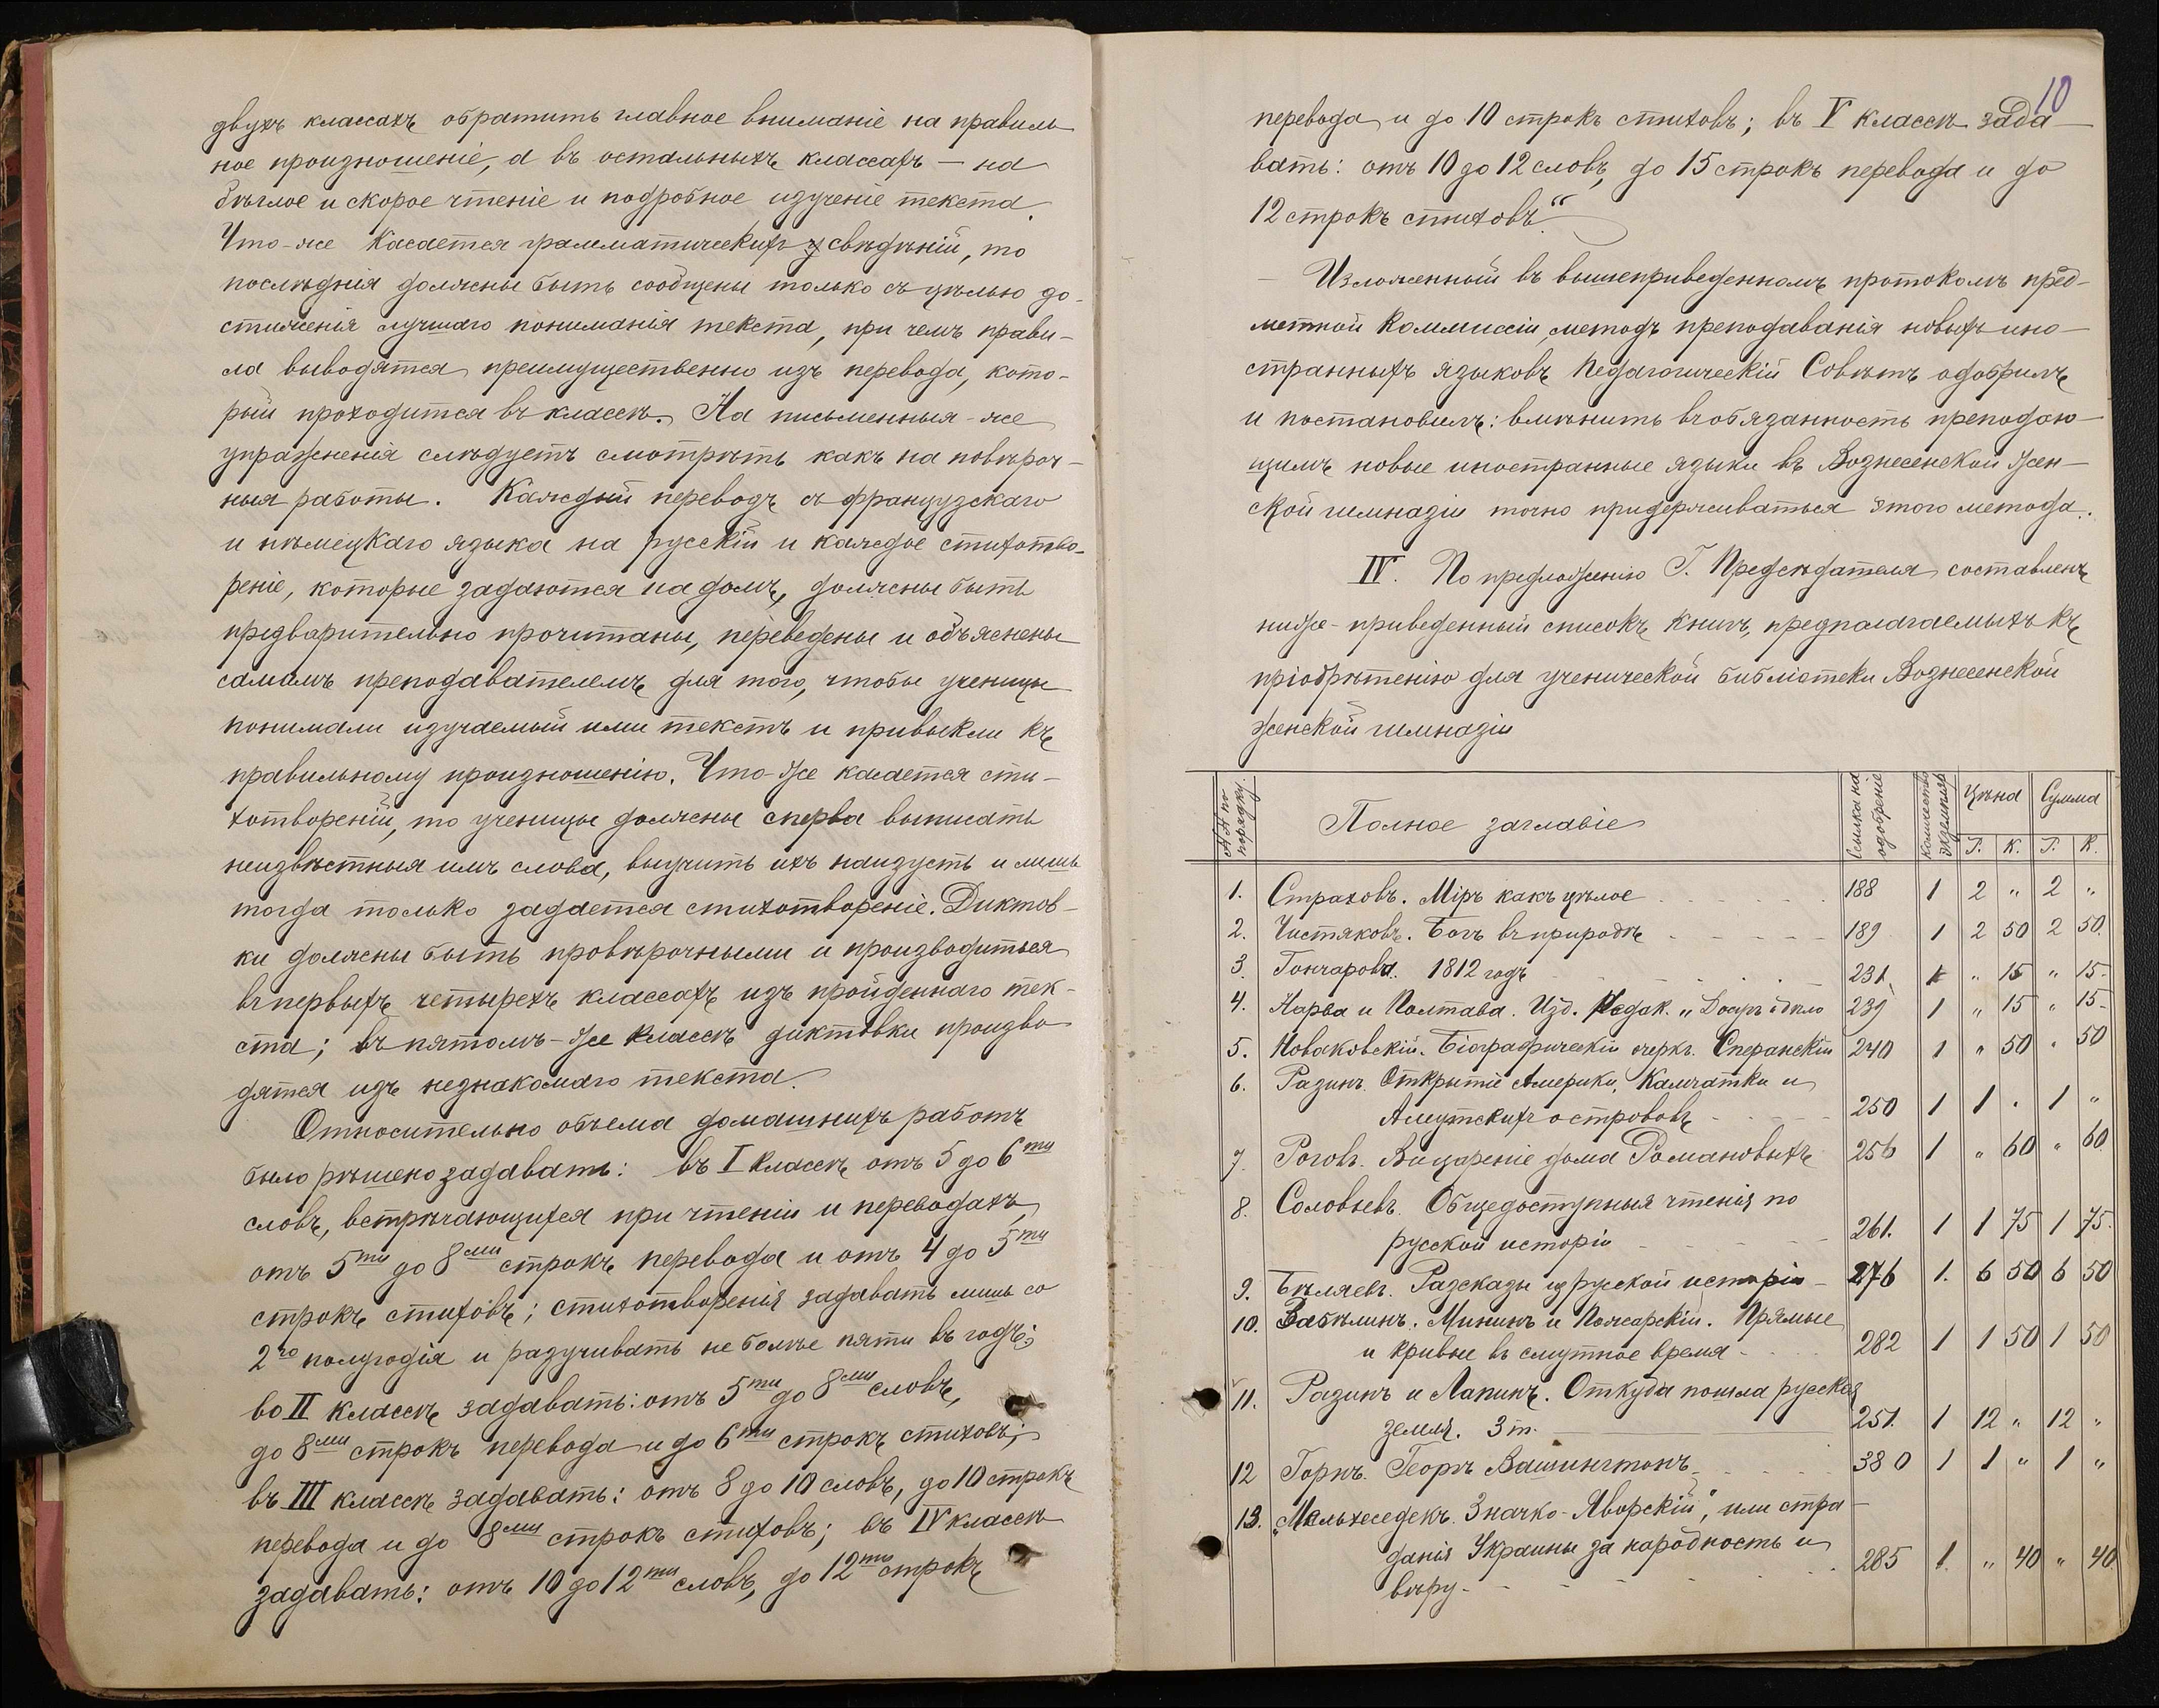 двухъ классахъ обратить главное вниманіе на правиль
ное произношеніе, а въ остальныхъ классахъ — на
бѣглое и скорое чтеніе и подробное изученіе текста.
Что-же касается грамматическихъ свѣдѣній, то
послѣднія должны быть сообщены только съ цѣлью до-
стиженія лучшаго пониманія текста, при чемъ прави-
ла выводятся преимущественно изъ перевода, кото-
рый проходится въ классѣ. На письменныя-же
упражненія слѣдуетъ смотрѣть какъ на повѣроч-
ныя работы. Каждый переводъ съ французскаго
и нѣмецкаго языка на русскій и каждое стихотво-
реніе, которые задаются на домъ, должны быть
предварительно прочитаны, переведены и объяснены
самимъ преподавателемъ для того, чтобы ученицы
понимали изучаемый ими текстъ и привыкли къ
правильному произношенію. Что-же касается сти-
хотвореній, то ученицы должны сперва выписать
неизвѣстныя имъ слова, выучить ихъ наизусть и лишь
тогда только задается стихотвореніе. Диктов-
ки должны быть провѣрочными и производиться
въ первыхъ четырехъ классахъ изъ пройденнаго тек-
ста; въ пятомъ-же классѣ диктовки произво
дятся изъ незнакомаго текста.
Относительно объема домашнихъ работъ
было рѣшено задавать: въ I классѣ отъ 5 до 6ти
словъ, встрѣчающихся при чтеніи и переводахъ,
отъ 5ти до 8ми строкъ перевода и отъ 4 до 5ти
строкъ стиховъ; стихотворенія задавать лишь со
2го полугодія и разучивать не болѣе пяти въ годъ;
во II классѣ задавать: отъ 5ти до 8ми словъ,
до 8ми строкъ перевода и до 6ти строкъ стиховъ;
въ III классѣ задавать: отъ 8 до 10 словъ, до 10 строкъ
перевода и до 8ми строкъ стиховъ; въ IV классѣ
задавать: отъ 10 до 12ти словъ, до 12ти строкъ
10
перевода и до 10 строкъ стиховъ; въ V классѣ зада
вать: отъ 10 до 12 словъ, до 15 строкъ перевода и до
12 строкъ стиховъ."
— Изложенный въ вышеприведенномъ протоколѣ пред-
метной Коммиссіи, методъ преподаванія новыхъ ино-
странныхъ языковъ Педагогическій Совѣтъ одобрилъ
и постановилъ: вмѣнить въ обязанность преподаю-
щимъ новые иностранные языки въ Вознесенской жен-
ской гимназіи точно придерживаться этого метода.
IV. По предложенію Г. Предсѣдателя составленъ
ниже-приведенный списокъ книгъ, предполагаемыхъ къ
пріобрѣтенію для ученической библіотеки Вознесенской
женской гимназіи
№№ по порядку. Полное заглавіе Ссылка на одобреніе Количество экземпляр. Цѣна Сумма
Р. К. Р. К.
1. Страховъ. Міръ какъ цѣлое 188 1 2 " 2 "
2. Чистяковъ. Богъ въ природѣ 189 1 2 50 2 50.
3. Гончарова. 1812 годъ 231 1 " 15 " 15-
4. Нарва и Полтава. Изд. Редак. „Досугъ и дѣло 239 1 " 15 " 15-
5. Новаковскій. Біографическій очеркъ. Сперанскій 240 1 " 50 " 50
6. Разинъ. Открытіе Америки, Камчатки и
Алеутскихъ острововъ 250 1 1 " 1 "
7. Роговъ. Воцареніе дома Романовыхъ 256 1 " 60 " 60.
8. Соловьевъ. Общедоступныя чтенія по
русской исторіи 261. 1 1 75 1 75.
9. Бѣляевъ. Разсказы изъ русской исторіи 276 1. 6 50 6 50
10. Забѣлинъ. Мининъ и Пожарскій. Прямые
и кривые въ смутное время 282 1 1 50 1 50
11. Разинъ и Лапинъ. Откуда пошла русская
земля. 3 т. 251. 1 12 " 12 "
12 Горнъ. Георгъ Вашингтонъ 380 1 1 " 1 "
13. „Мельхеседекъ Значко-Яворскій", или стра-
данія Украины за народность и
вѣру 285 1. " 40 " 40.